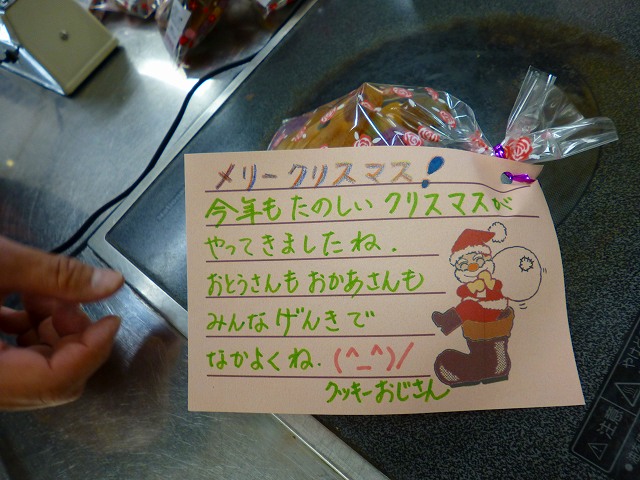 メリークリスマス!
今年もたのしいクリスマスが
やってきましたね.
おとうさんもおかあさんも
みんなげんきで
なかよくね.(^_^)/
クッキーおじさん
注意